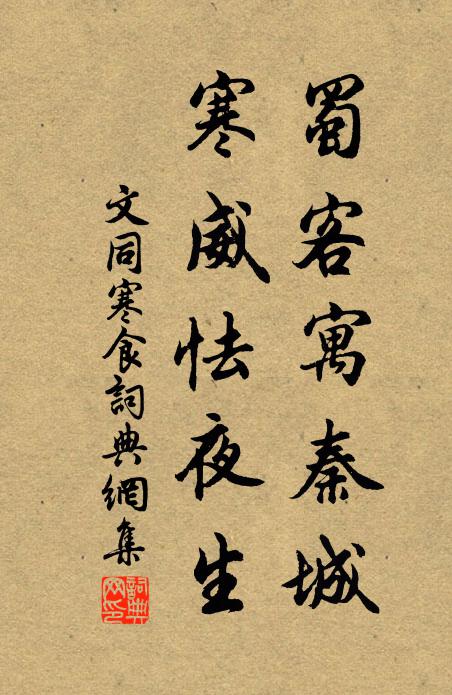 蜀客寓秦城
寒威怯夜生
文同寒食詞典網集
詞典網印